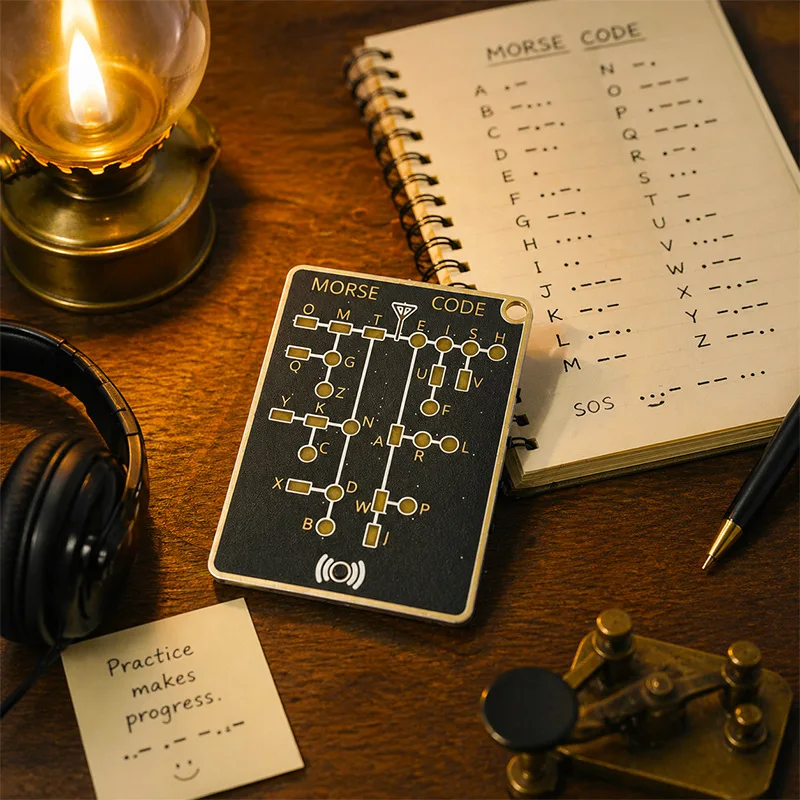 MORSE CODE
O M T E I S H
Q G U V
Z F
Y K N A R L
C
X D W P
B J
MORSE CODE
A .-
B -...
C -.-.
D -..
E .
F ..-.
G --.
H ....
I ..
J .---
K
L
M
N -.
O ---
P .--.
Q --.-
R .-.
S ...
T -
U ..-
V ...-
W .---
X -..-
Y -.--
Z --..
SOS
Practice
makes
progress.